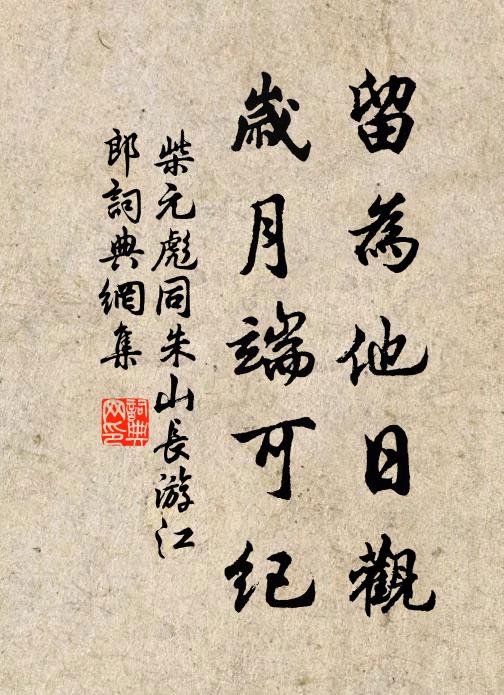 留為他日觀
歲月端可紀
柴元彪同朱山長游江
郎詞典網集
詞典
网印